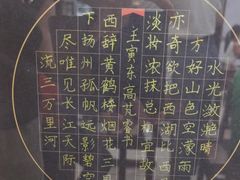 水光潋滟晴
方好山色空濛雨
亦奇欲把西湖比西
淡妆浓抹总相宜故
壬寅冬高芃睿书
西辞黄鹤楼烟花三
下扬州孤帆远影碧空
尽唯见长江天际
流三万里河